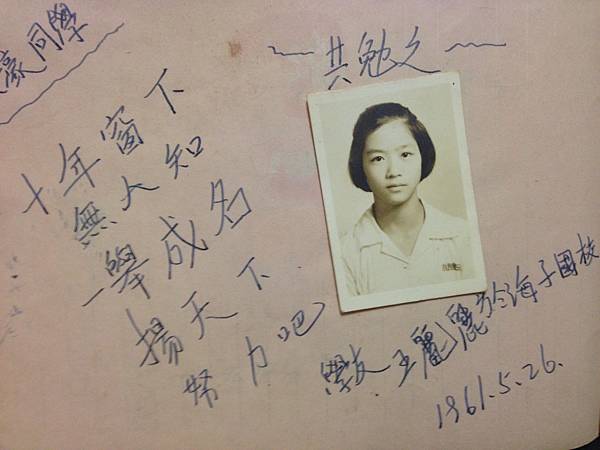 豪同學
~ 共勉之 ~
十年窗下
無人知
一舉成名
揚天下
努力吧
學友 王麗麗於海子國校
1961.5.26.